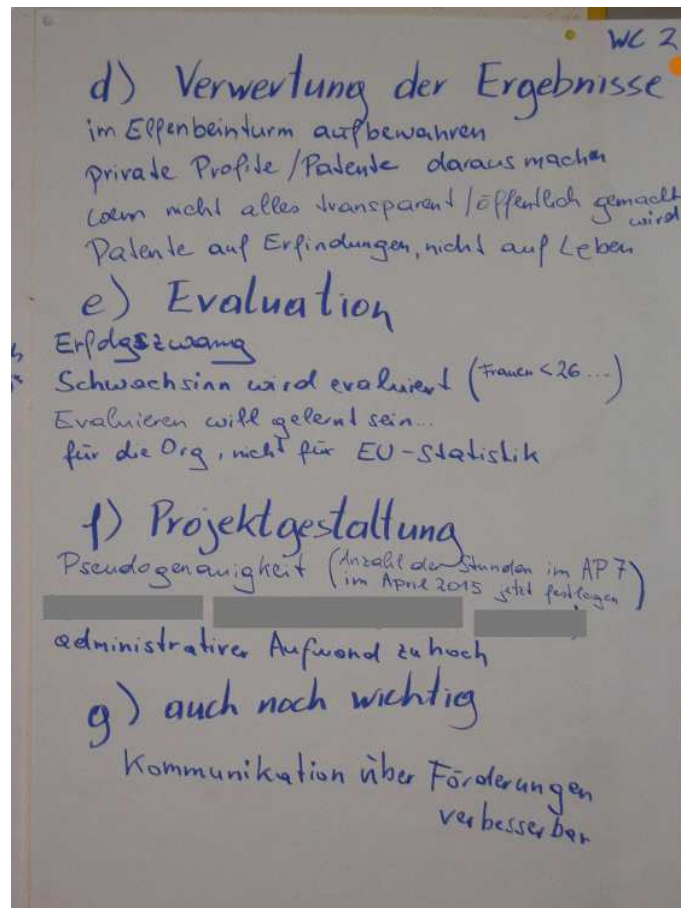 WC 2
d) Verwertung der Ergebnisse
im Elfenbeinturm aufbewahren
private Profite/Patente daraus machen
wenn nicht alles transparent/öffentlich gemacht
wird
Patente auf Erfindungen, nicht auf Leben
e) Evaluation
Erfolgszwang
Schwachsinn wird evaluiert (Frauen < 26....)
Evaluieren will gelernt sein...
für die Org, nicht für EU-Statistik
f) Projektgestaltung
Pseudogenauigkeit (Anzahl der Stunden im AP 7
im April 2015 jetzt festlegen)
administrativer Aufwand zu hoch
g) auch noch wichtig
Kommunikation über Förderungen
verbesserbar